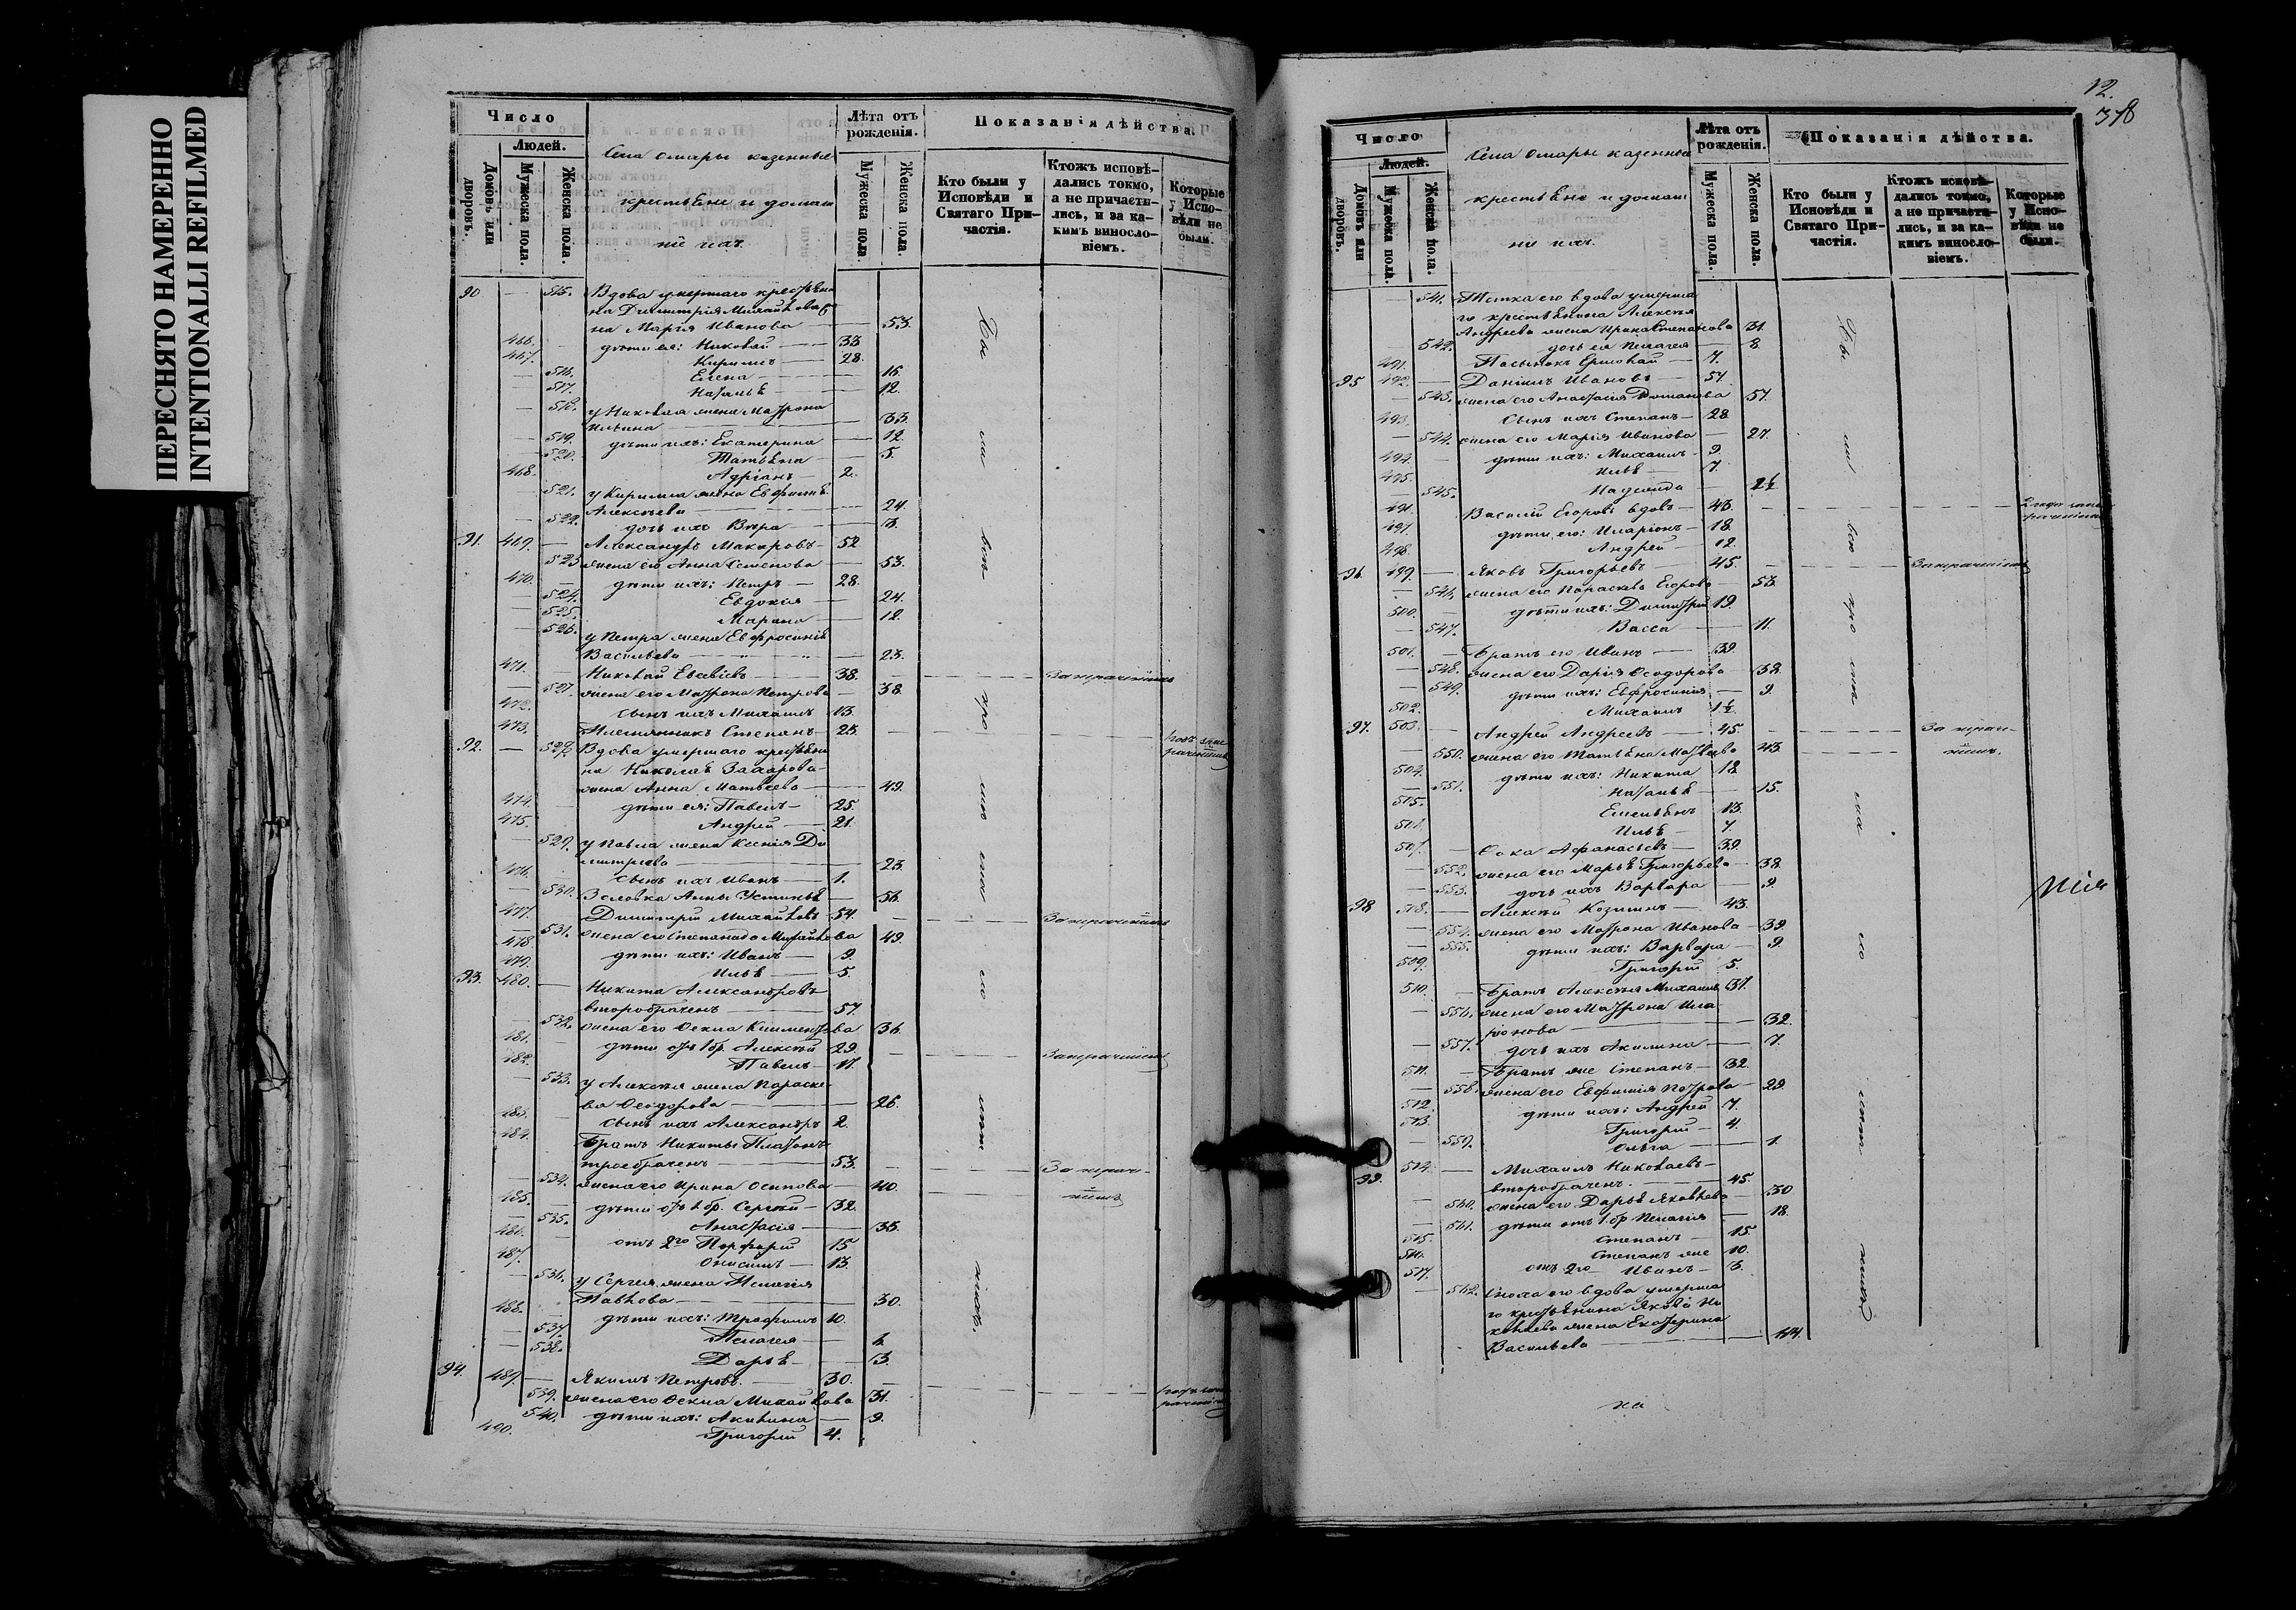 ПЕРЕСНЯТО НАМЕРЕННО
INTENTIONALLI REFILMED
Число
Людей.
Домовъ или дворовъ.
Мужеска пола.
Женска пола.
Села Омары казенные
крестьяне и домаш
нiе ихъ
Лѣта отъ рожденія.
Мужеска пола.
Женска пола.
Показанія дѣйства.
Кто были у Исповѣди и Святаго Причастія.
Ктожъ исповѣ-
дались токмо,
а не причасти-
лись, и за ка-
кимъ винosло-
віемъ.
Которые
у Испо-
вѣди не
были.
90 — 515. Вдова умершаго крестьяни
на Димитрія Михайлова же
на Марія Иванова — 53.
466. дѣти ея: Николай — 33
467. Кириллъ — 28
516. Елена — 16.
517. Наталья — 12.
518. у Николая жена Матрона
Ильина — 33.
519. дѣти ихъ: Екатерина — 12.
520. Татьяна — 5.
468. Адріанъ — 2.
521. у Кирилла жена Евфимья
Алексѣева — 24.
522. дочь ихъ Вѣра — 3.
91. 469. — Александръ Макаровъ — 52
523 жена его Анна Семенова — 53.
470. дѣти ихъ: Петръ — 28.
524. Евдокія — 24.
525. Марина — 12.
526. у Петра жена Евфросинія
Васильева — 23.
471. Николай — 38.
527. жена его Матрона Петрова — 38.
472. сынъ ихъ Михаилъ 13.
473. Племянникъ Степанъ — 25
92. — 528. Вдова умершаго крестьяни
на Николая Захарова
жена Анна Матвѣева — 49.
474. дѣти ея: Павелъ — 25.
475. Андрей — 21.
529. у Павла жена Ксенія Ди
митріева — 23.
476. сынъ ихъ Иванъ — 1.
530. Золовка Анны Устинья — 56.
477. Димитрій Михайловъ 54.
531. жена его Степанида Михайлова 49.
478 дѣти ихъ: Иванъ — 9.
479. Илья — 5.
93. 480. — Никита Александровъ
второбраченъ — 57.
532. жена его Ѳекла Климентова 36.
481. дѣти отъ 1 бр. Алексѣй 29.
482. Павелъ — 17.
533. у Алексѣя жена Параске
ва Ѳеодорова — 26.
483. сынъ ихъ Александръ 2.
484. Братъ Никиты Платонъ
троебраченъ — 53.
534. жена его Ирина Осипова — 40.
485. дѣти отъ 1 бр. Сергѣй — 32.
535. Анастасія — 35.
486. отъ 2го Порфирій 15
487. Онисимъ — 13.
536. у Сергея жена Пелагія
Павлова — 30.
488. дѣти ихъ: Трофимъ 10.
537. Пелагея —
538. Дарья — 3.
94. 489. — Якимъ Петровъ — 30.
539. жена его Ѳекла Михайлова 31.
540. дѣти ихъ: Акилина — 9.
490. Григорій 4.
12.
378
Число
Людей.
Домовъ или дворовъ.
Мужеска пола.
Женска пола.
Села Омары казенные
крестьяне и домаш
нiе ихъ.
Лѣта отъ рожденія.
Мужеска пола.
Женска пола.
Показанія дѣйства.
Кто были у Исповѣди и Святаго Причастія.
Ктожъ исповѣ-
дались токмо,
а не причасти-
лись, и за ка-
кимъ винosло-
віемъ.
Которые
у Испо-
вѣди не
были.
541. Тетка его вдова умерша
го крестьянина Алексѣя
Андреева жена Ирина Степанова 31.
542. дочь ея Пелагея — 8.
491. Пасынокъ Ермолай — 7.
95 492. — Даніилъ Ивановъ — 57.
543. жена его Анастасія Романова 57.
493. сынъ ихъ Степанъ — 28
544. жена его Марія Иванова — 27.
494. дѣти ихъ: Михаилъ — 9.
495. Илья — 7.
545. Надежда — 2½
496. Василій Егоровъ вдовъ — 43.
497. дѣти его: Иларіонъ — 18.
498. Андрей — 12.
96. 499. — Яковъ Григорьевъ — 45.
546. жена его Параскева Егорова — 53.
500. дѣти ихъ: Димитрій 19.
547. Васса — 11.
501. Братъ его Иванъ — 39.
548. жена его Дарія Ѳеодорова — 38.
549. дѣти ихъ: Евфросинія — 9.
502. Михаилъ 1½
97. 503. — Андрей Андреевъ — 45.
550. жена его Татьяна Матвѣева 43.
504. дѣти ихъ: Никита 18
551. Наталья — 15.
505. Емельянъ 13.
506. Илья — 7.
507. Ѳока Афанасьевъ — 39.
552. жена его Марья Григорьева — 38
553. дочь ихъ Варвара — 9.
98 508. — Алексѣй Козминъ — 43.
554. жена его Матрона Иванова — 39.
555. дѣти ихъ: Варвара — 9.
509. Григорій 5.
510. Братъ Алексѣя Михаилъ 37.
556. жена его Матрона Ила
ріонова — 32.
557. дочь ихъ Акилина — 7.
511. Братъ же Степанъ — 32.
558. жена его Евфимія Петрова — 29.
512. дѣти ихъ: Андрей 7.
513. Григорій — 4.
559. Ольга — 1.
99. 514. — Михаилъ Николаевъ —
второбраченъ. — 45.
560. жена его Дарья Яковлева 30
561. дѣти отъ 1 бр Пелагія 18.
515. Степанъ — 15.
516. Степанъ же 10.
517. отъ 2го Иванъ — 3.
562. Сноха его вдова умерша
го крестьянина Якова Ни
колаева жена Екатерина
Васильева — 44.